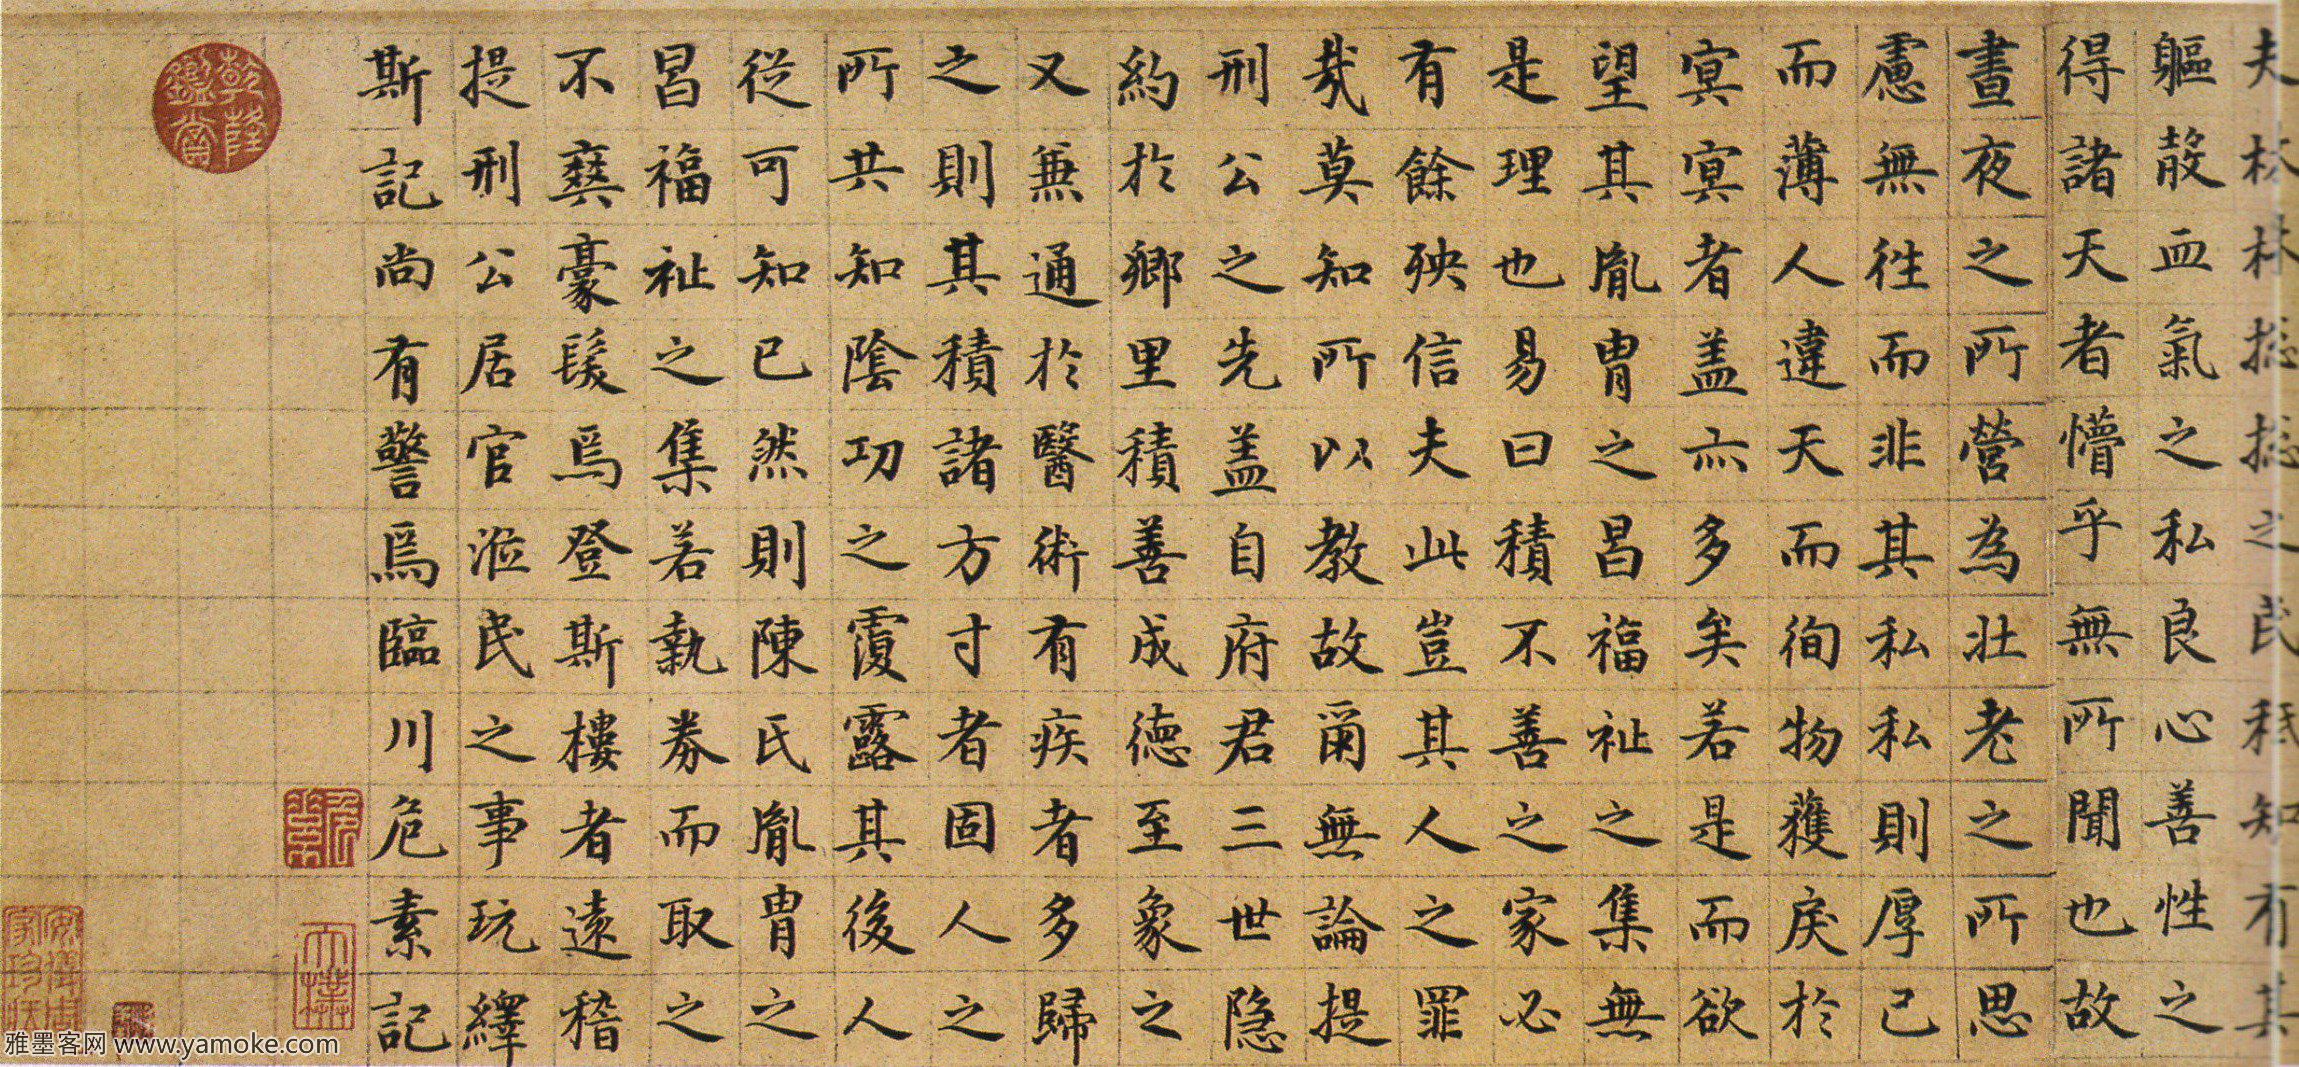 夫林林揔揔之民秪知有其
軀殽血氣之私良心善性之
得諸天者懵乎無所聞也故
晝夜之所營為壯老之所思
慮無徃而非其私私則厚己
而薄人違天而徇物獲戾於
冥冥者盖亦多矣若是而欲
望其胤胄之昌福祉之集無
是理也易曰積不善之家必
有餘殃信夫此豈其人之罪
㦲莫知所以教故爾無論提
刑公之先盖自府君三世隐
約於鄉里積善成德至象之
又兼通於醫術有疾者多歸
之則其積諸方寸者固人之
所共知隂功之覆露其後人
從可知已然則陳氏胤胄之
昌福祉之集若執券而取之
不爽豪髮焉登斯樓者遠稽
提刑公居官涖民之事玩繹
斯記尚有警焉臨川危素記
乾隆鑒賞
安儀周家珍藏
雅墨客网 www.yamoke.com